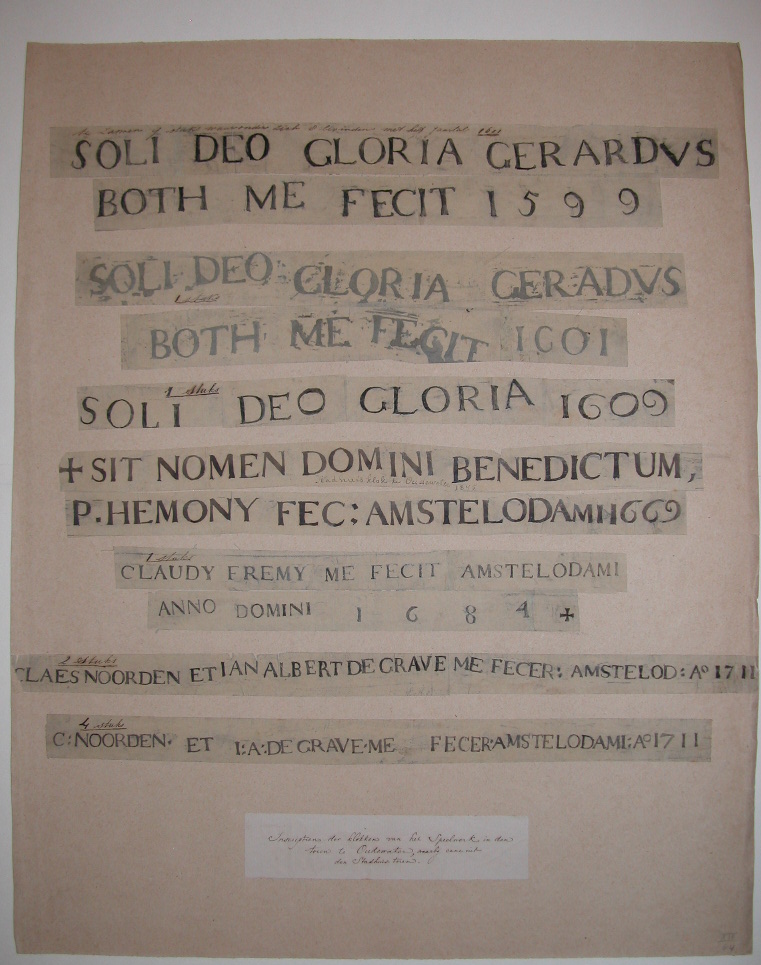 1601
SOLI DEO GLORIA GERARDVS
BOTH ME FECIT 1599
SOLI DEO GLORIA GERADVS
1 stuks
BOTH ME FECIT 1601
1 stuks
SOLI DEO GLORIA 1609
+ SIT NOMEN DOMINI BENEDICTUM,
P. HEMONY FEC: AMSTELODAMI 1669
1 stuks
CLAUDY FREMY ME FECIT AMSTELODAMI
ANNO DOMINI 1684 +
2 stuks
CLAES NOORDEN ET IAN ALBERT DE GRAVE ME FECER: AMSTELOD: Aº 1711
4 stuks
C: NOORDEN· ET I:A·DE GRAVE·ME FECER:AMSTELODAMI:Aº1711
Inscriptions der klokken van het Speelwerk in den
toren te Oudewater,
den Stadhuis toren.